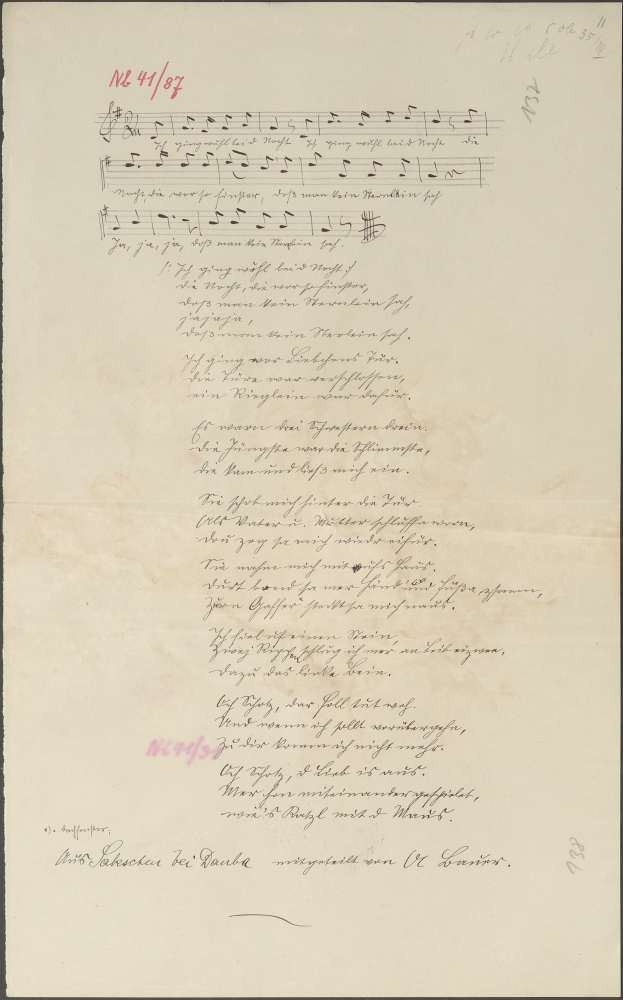 Nb 41/87
132
Ich ging wohl bei d Nacht Ich ging wohl bei d Nacht die
Nacht, die war so finster, daß man kein Sternlein sah
Ja, ja, ja, daß man kein Sternlein sah.
/: Ich ging wohl bei d Nacht :/
die Nacht, die war so finster,
daß man kein Sternlein sah,
ja ja ja,
daß man kein Sternlein sah.
Ich ging vor Liebchens Tür.
die Türe war verschlossen,
ein Rieglein war dafür.
Es warn drei Schwestern drein.
die Jüngste war die Schlimmste,
die kam und ließ mich ein.
Sie schob mich hinter die Tür
Als Vater u. Mutter schlaffa warn,
dou zog sa mich wiedr eifür.
Sie nahm mich mit aufs Haus.
durt band sa mer Händ und Füßa zsamm,
Zurn steckt sa mich naus.
Ich fiel uf einen Stein,
Zwej Rippen schlug ich mer an Leib eizwee,
dazu das linke Bein.
Ach Schatz, dar Foll tut weh.
Und wenn ich sollt vorübergehn,
Zu dir komm ich nicht mehr.
Ach Schatz, d Lieb is aus.
Mer hon miteinander gespielet,
wie's Katzl mit d Maus.
Aus Sabeschen bei Dauba mitgeteilt von A Bauer.
138